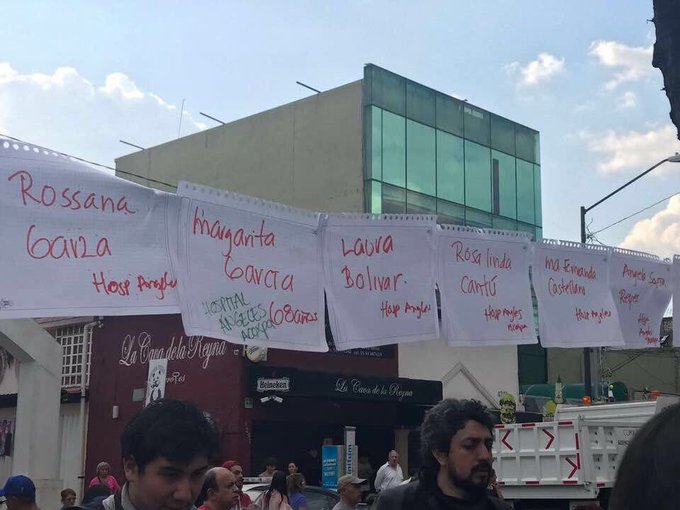 Rossana
Garza
Hosp Angeles
Margarita
García
HOSPITAL
ANGELES
ACOXPA
68 años
Laura
Bolivar.
Hosp Angeles
Rosalinda
Cantú
Hosp Angeles
acoxpa
Ma Fernanda
Castellano
Hosp Angeles
La Cava de la Reyna
Heineken
La Cava de la Reyna